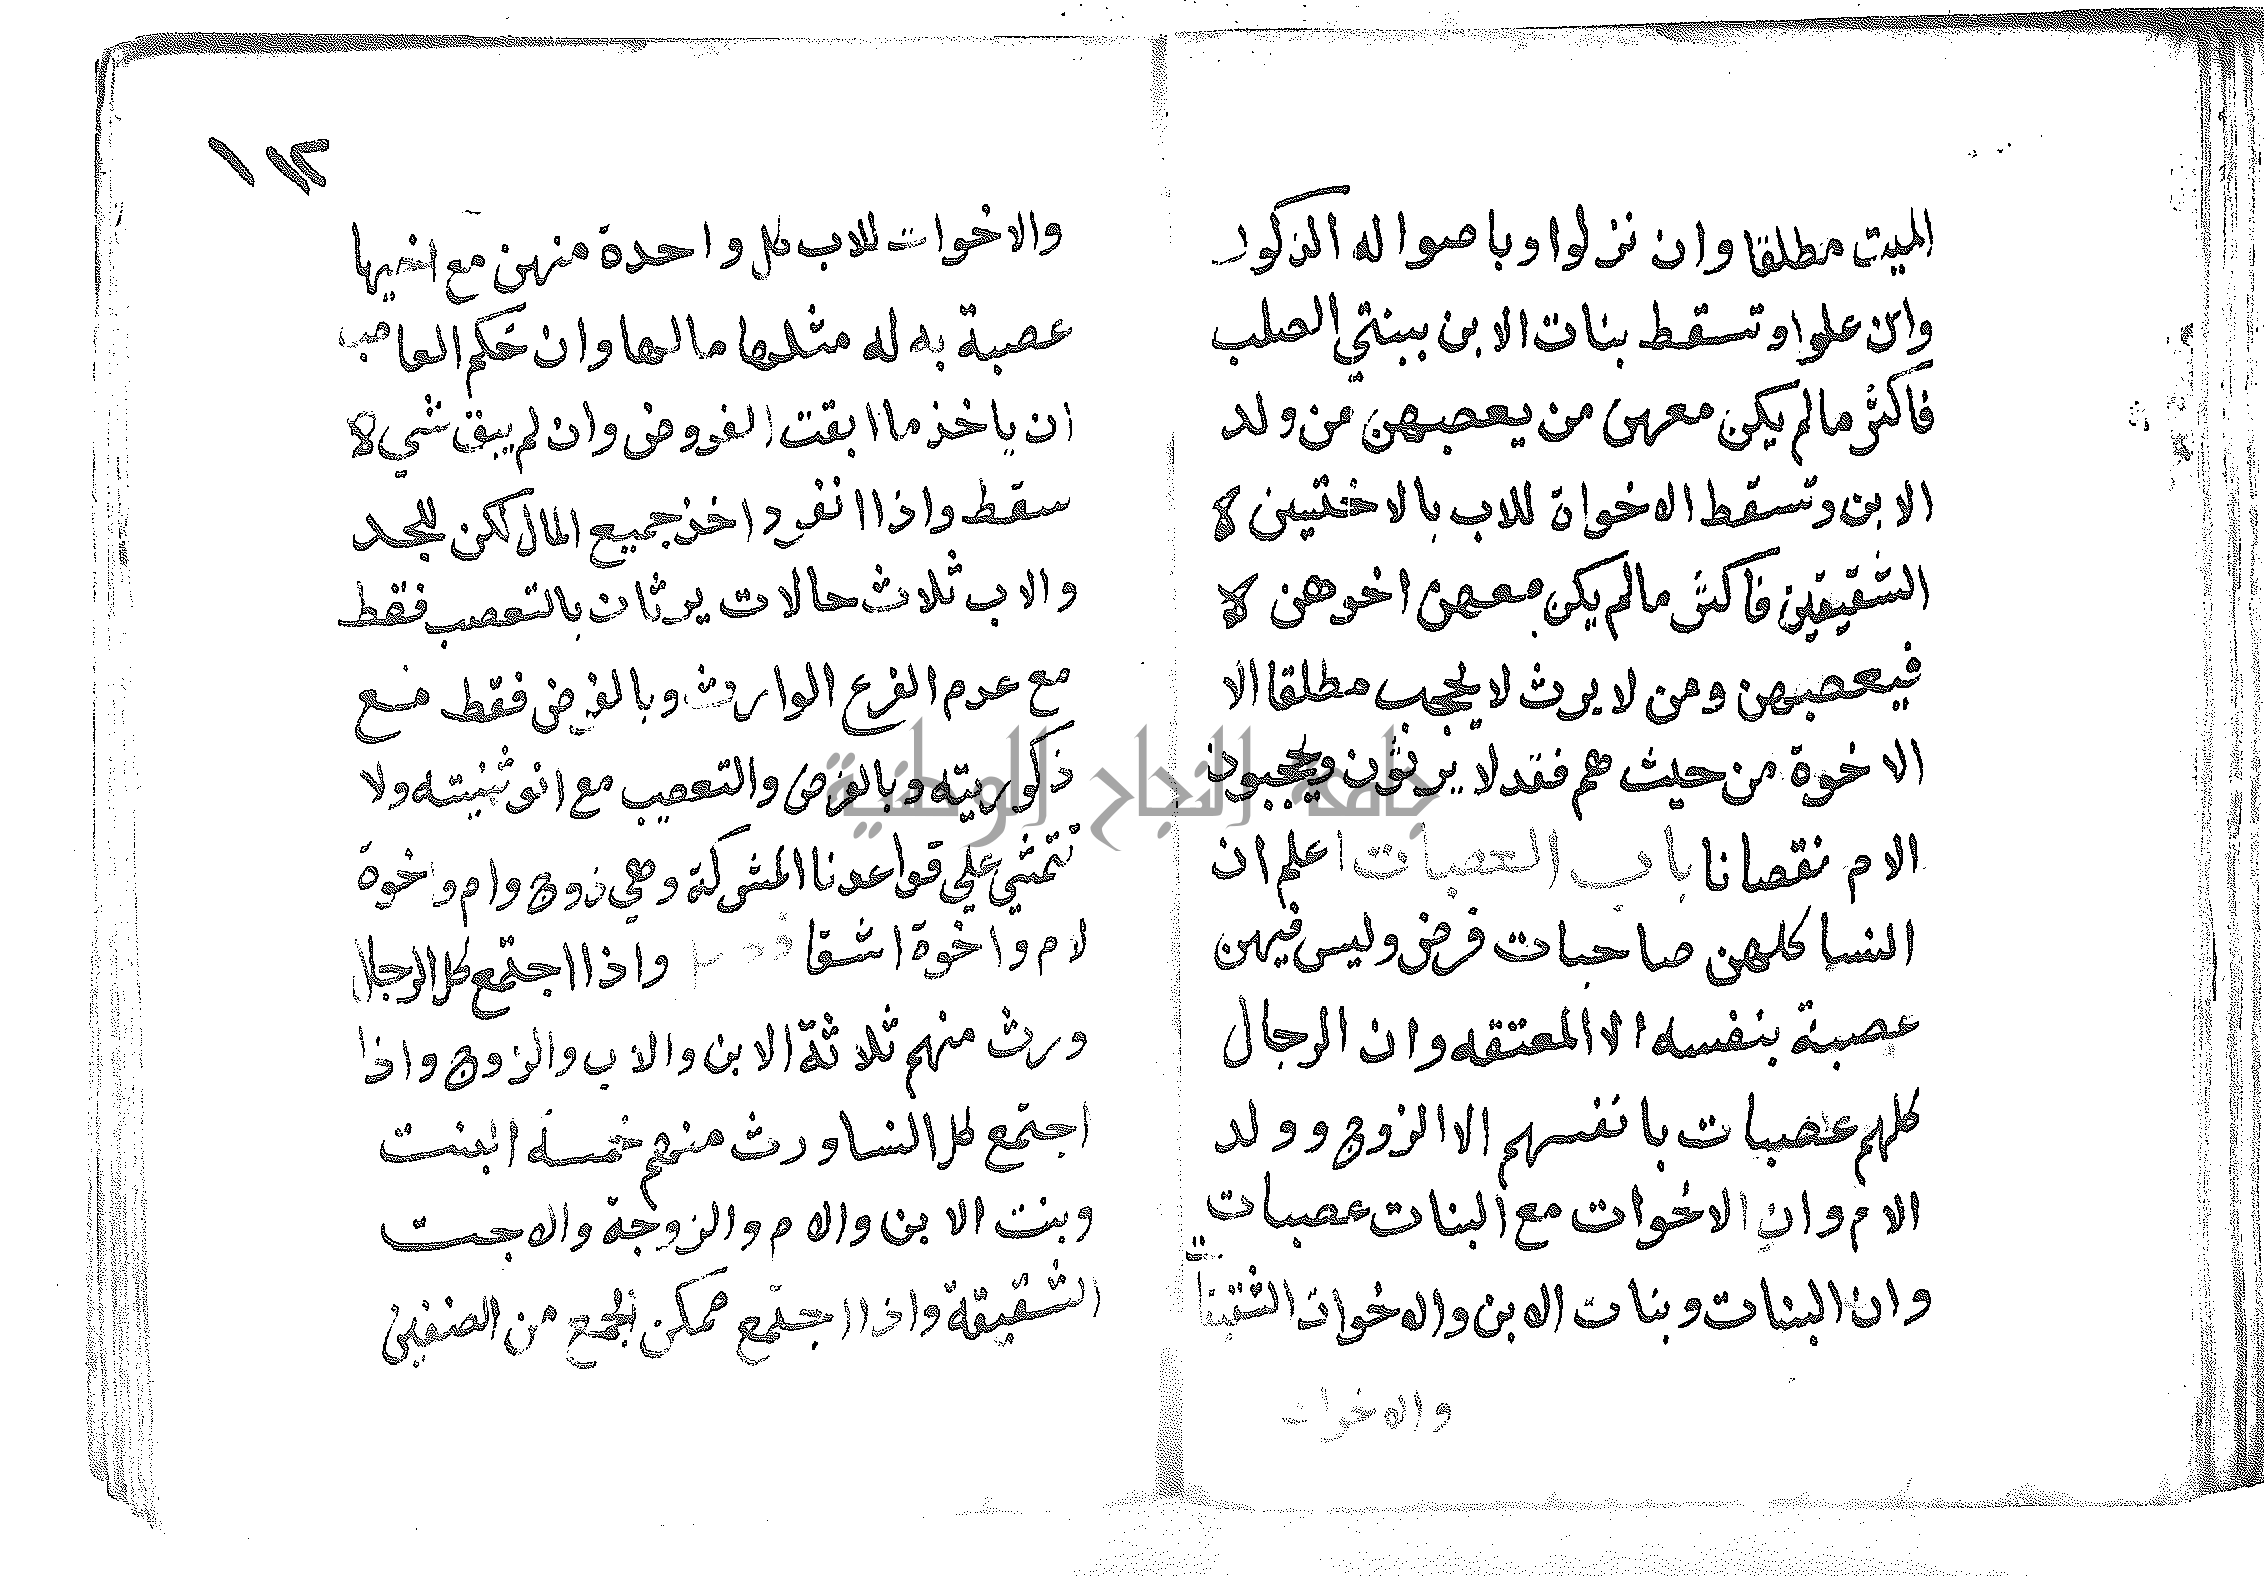 الميت مطلقا وان نزلوا وباصوله الذكور
وان علوا وتسقط بنات الابن ببنتي الصلب
فاكثر مالم يكن معهن من يعصبهن من ولد
الابن وتسقط الاخواة للاب بالاختيين
الشقيقتين فاكثر مالم يكن معهن اخوهن
فيعصبهن ومن لا يرث لا يحجب مطلقا الا
الاخوة من حيث هم فقد لا يرثون ويحجبون
الام نقصانا باب العصبات اعلم ان
النسا كلهن صاحبات فرض وليس فيهن
عصبة بنفسه الا المعتقه وان الرجال
كلهم عصبات بانفسهم الا الزوج وولد
الام وان الاخوات مع البنات عصبات
وان البنات وبنات الابن والاخوات
والاخوات
١١٢
والاخوات للاب كل واحدة منهن مع اخيها
عصبة به له مثلها مالها وان حكم العاصب
ان ياخذ ما ابقت الفروض وان لم يبق شي
سقط واذا انفرد اخذ جميع المال لكن للجد
والاب ثلاث حالات يرثان بالتعصب فقط
مع عدم الفرع الوارث وبالفرض فقط مع
ذكوريته وبالفرض والتعصيب مع انوثيته ولا
تتمشي علي قواعدنا المشركة وهي زوج وام واخوة
لام واخوة اشقا واذا اجتمع كل الرجال
ورث منهم ثلاثة الابن والاب والزوج واذا
اجتمع كل النسا ورث منهم خمسة البنت
وبنت الابن والام والزوجة والاجت
الشقيقة واذا اجتمع ممكن الجمع من الصنفين
جامعة النجاح الوطنية